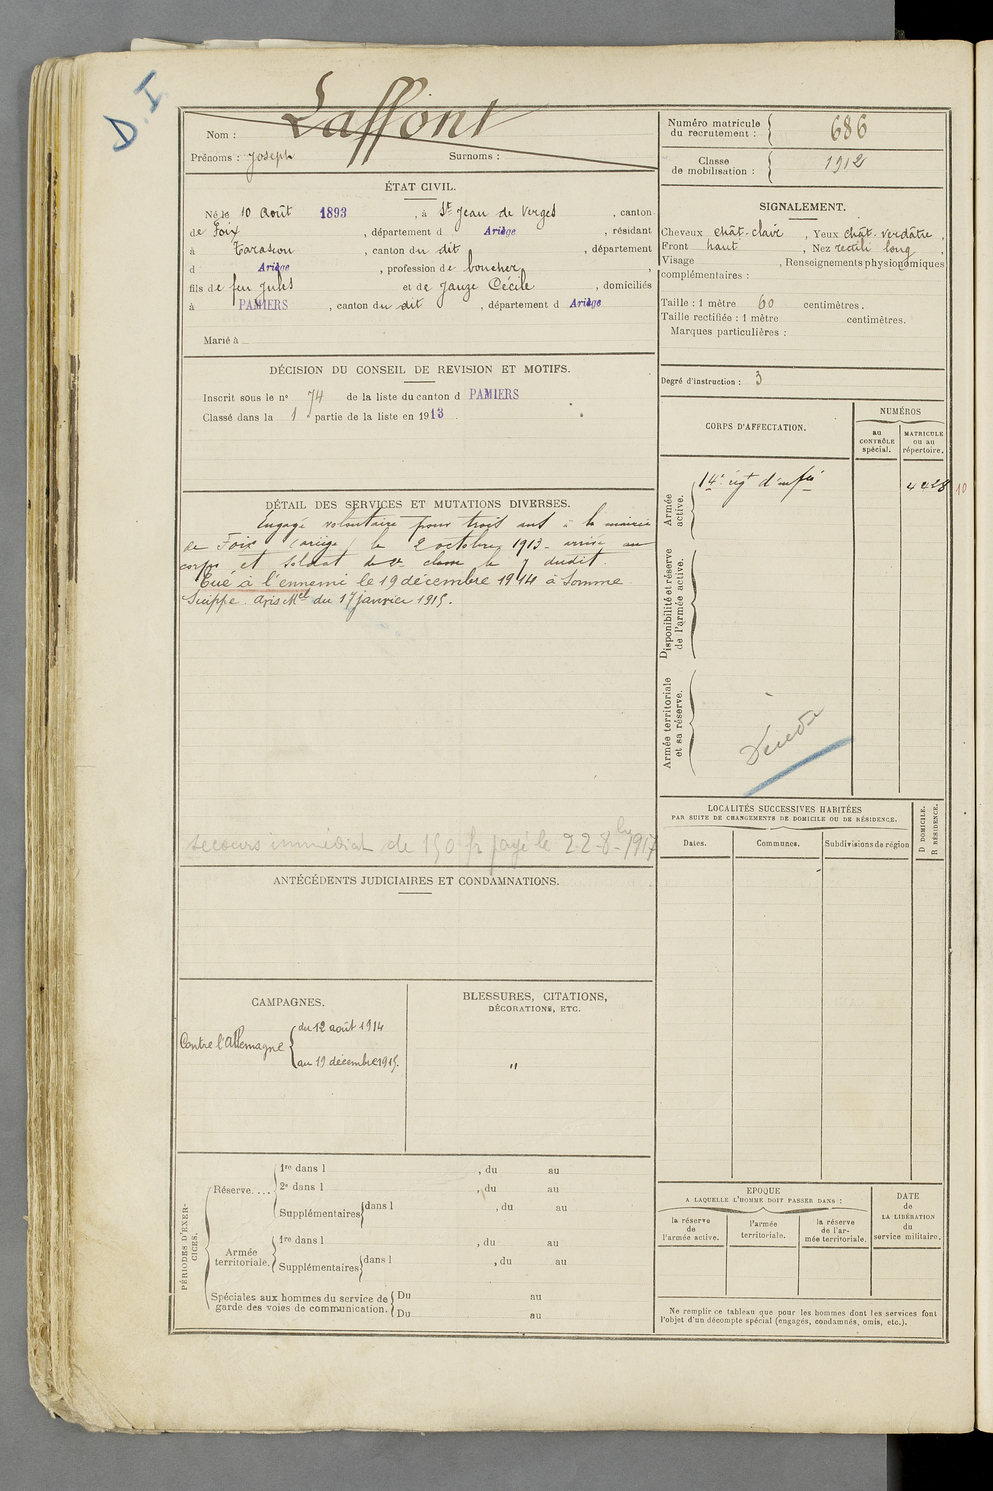 D.I
Nom : Laffont
Prénoms : Joseph Surnoms :
ÉTAT CIVIL.
Né le 10 Août 1893, à St Jean de Verges, canton
de Foix, département d Ariège, résidant
à Tarascon, canton du dit, département
d Ariège, profession de boucher,
fils de feu Jules et de Jauze Cécile, domiciliés
à PAMIERS, canton du dit, département d Ariège
Marié à
DÉCISION DU CONSEIL DE REVISION ET MOTIFS.
Inscrit sous le no 74 de la liste du canton d PAMIERS
Classé dans la 1 partie de la liste en 1913
DÉTAIL DES SERVICES ET MUTATIONS DIVERSES.
Engagé volontaire pour trois ans à la mairie
de Foix (ariège) le 2 octobre 1913. arrivé au
corps et soldat de 2e classe le 7 dudit.
Tué à l'ennemi le 19 décembre 1914 à Somme
Suippe. Avis Mel du 17 janvier 1915.
secours immédiat de 150 fr payé le 22-8-1917
ANTÉCÉDENTS JUDICIAIRES ET CONDAMNATIONS.
CAMPAGNES.
Contre l'Allemagne { du 12 août 1914
au 19 décembre 1915.
BLESSURES, CITATIONS,
DÉCORATIONS, ETC.
"
PÉRIODES D'EXER-
CICES.
Réserve.... 1re dans l , du au
2e dans l , du au
Supplémentaires { dans l , du au
Armée
territoriale. 1re dans l , du au
Supplémentaires { dans l , du au
Spéciales aux hommes du service de
garde des voies de communication. { Du au
Du au
Numéro matricule
du recrutement : 686
Classe
de mobilisation : 1912
SIGNALEMENT.
Cheveux chât-clair, Yeux chât-verdâtre,
Front haut, Nez rectili long,
Visage , Renseignements physionomiques
complémentaires :
Taille : 1 mètre 60 centimètres.
Taille rectifiée : 1 mètre centimètres.
Marques particulières :
Degré d'instruction : 3
CORPS D'AFFECTATION.
NUMÉROS
au
CONTRÔLE
spécial.
MATRICULE
ou au
répertoire.
Armée
active.
14e régt d'infie 4428 10
Disponibilité et réserve
de l'armée active.
Armée territoriale
et sa réserve.
LOCALITÉS SUCCESSIVES HABITÉES
PAR SUITE DE CHANGEMENTS DE DOMICILE OU DE RÉSIDENCE.
D DOMICILE.
R RÉSIDENCE.
Dates. Communes. Subdivisions de région
EPOQUE
A LAQUELLE L'HOMME DOIT PASSER DANS :
la réserve
de
l'armée active.
l'armée
territoriale.
la réserve
de l'ar-
mée territoriale.
DATE
de
LA LIBÉRATION
du
service militaire.
Ne remplir ce tableau que pour les hommes dont les services font
l'objet d'un décompte spécial (engagés, condamnés, omis, etc.).